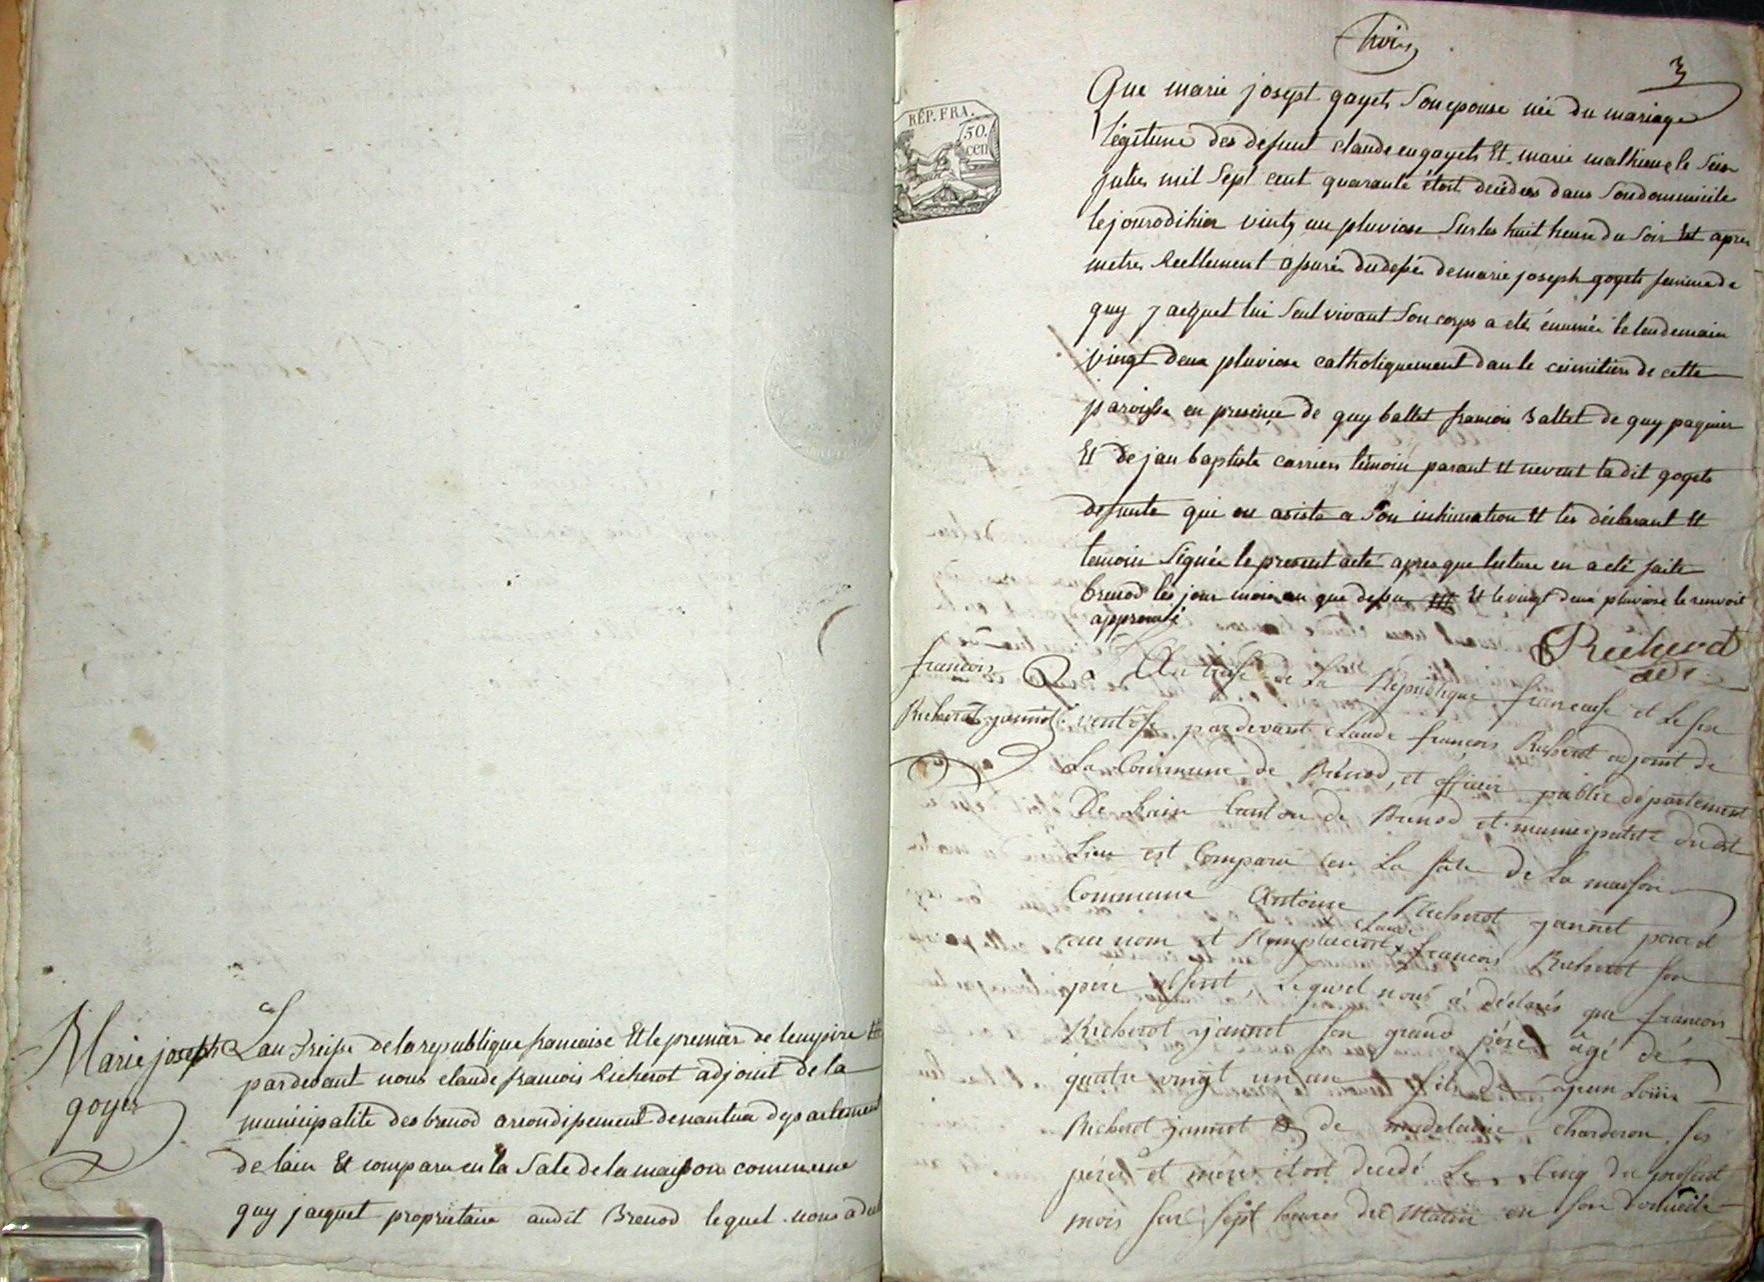 Marie josephe
goyet
Lan Treise de la republique francaise Et le premier de lempire
pardevant nous claude francois Richerot adjoint de la
municipalite des brenod arondisement denantua departement
de lain Et comparu en la Sale de la maison commune
guy jacquet proprietaire audit Brenod lequel nous a
trois
3
RÉP. FRA.
50.
cen
Que marie josept goyet Son epouse née du mariage
légitime des defunt claude goyets Et marie mathieu le
mil Sept cent quarante étoit décédés dans Son dommicile
le jourodihier vingt un pluviose Sur les huit heure du Soir Et apres
metre Reellement asuré du desé de marie joseph goyets femme de
guy jacquet lui Seul vivant Son corps a eté le lendemain
vingt deux pluviose catholiquement dan le cimitiere de cette
paroisse en presence de guy ballet francois Ballet de guy paquier
Et de jan baptiste carrier temoin parant et neveut ladit goyets
defunte qui on asista a Son inhumation Et les déclarant Et
temoin Signée le present acte apres que lecture en a eté faite
brenod les jour mois an que desu Et le vingt deux pluviose le renvoit
approuvé
Richerot
adt
francois
Richerot jannet
An treise de La Republique francaise et Le six
ventose pardevant claude françois Richerot adjoint de
La Commune de Brenod, et officier public département
De Lain Canton de Brenod et municipalité dudit
Lieu est Comparu en La sale de La maison
Commune Antoine Richerot jannet
claude
au nom et Remplacent françois Richerot son
père absent, Lequel nous a déclarés que francois
Richerot jannet son grand père âgé dé
quatre vingt un an fils de jean Louis
Richerot jannet de madelaine charderon ses
péres et mére étoit decedé Le cinq du present
mois sur sept heures du matin en son domicile